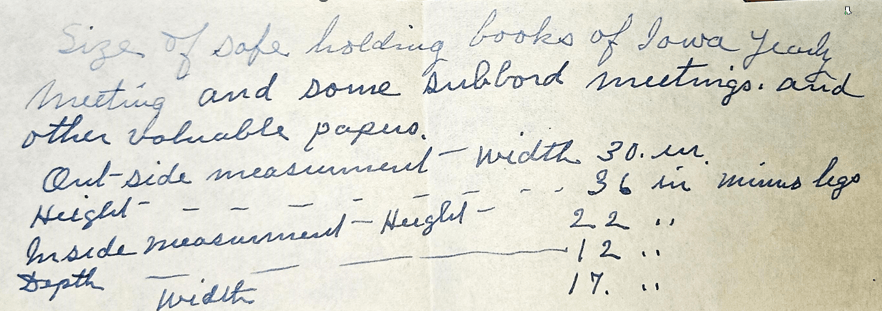 Size of safe holding books of Iowa Yearly
Meeting and some subbord meetings. and
other valuable papers.
Out-side measurment - Width 30. in.
Height - - - - - - - - 36 in minus legs
Inside measurment - Height - 22 "
Depth - - - 12 "
Width 17. "